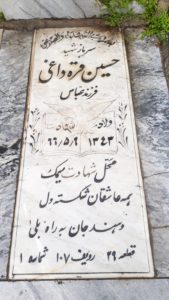 سرباز شهید
حسین قره داغی
فرزند عباس
ولادت
۱۳۴۳ ۶۶/۵/۹
محل شهادت میمک
همه عاشقان شکسته دل
دهند جان به راه بلی
قطعه ۲۹ ردیف ۱۰۷ شماره ۱